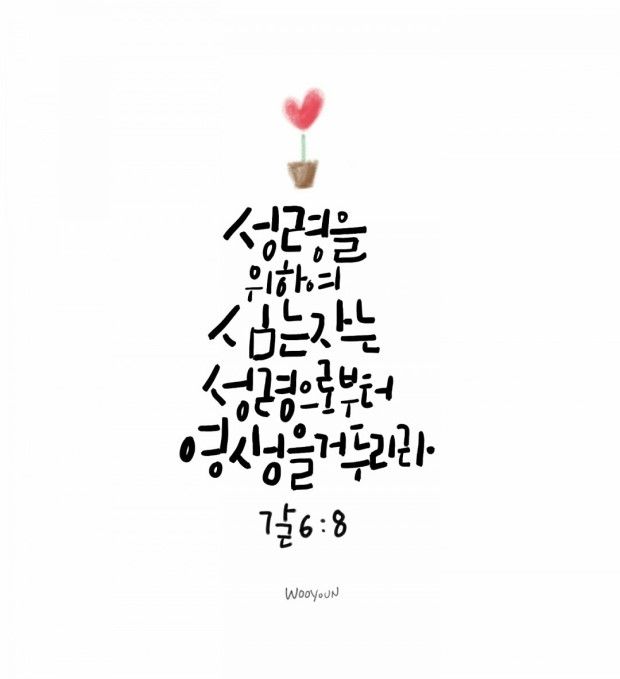 성령을
위하여
심는자는
성령으로부터
영생을거두리라
갈6:8
WOOYOUN